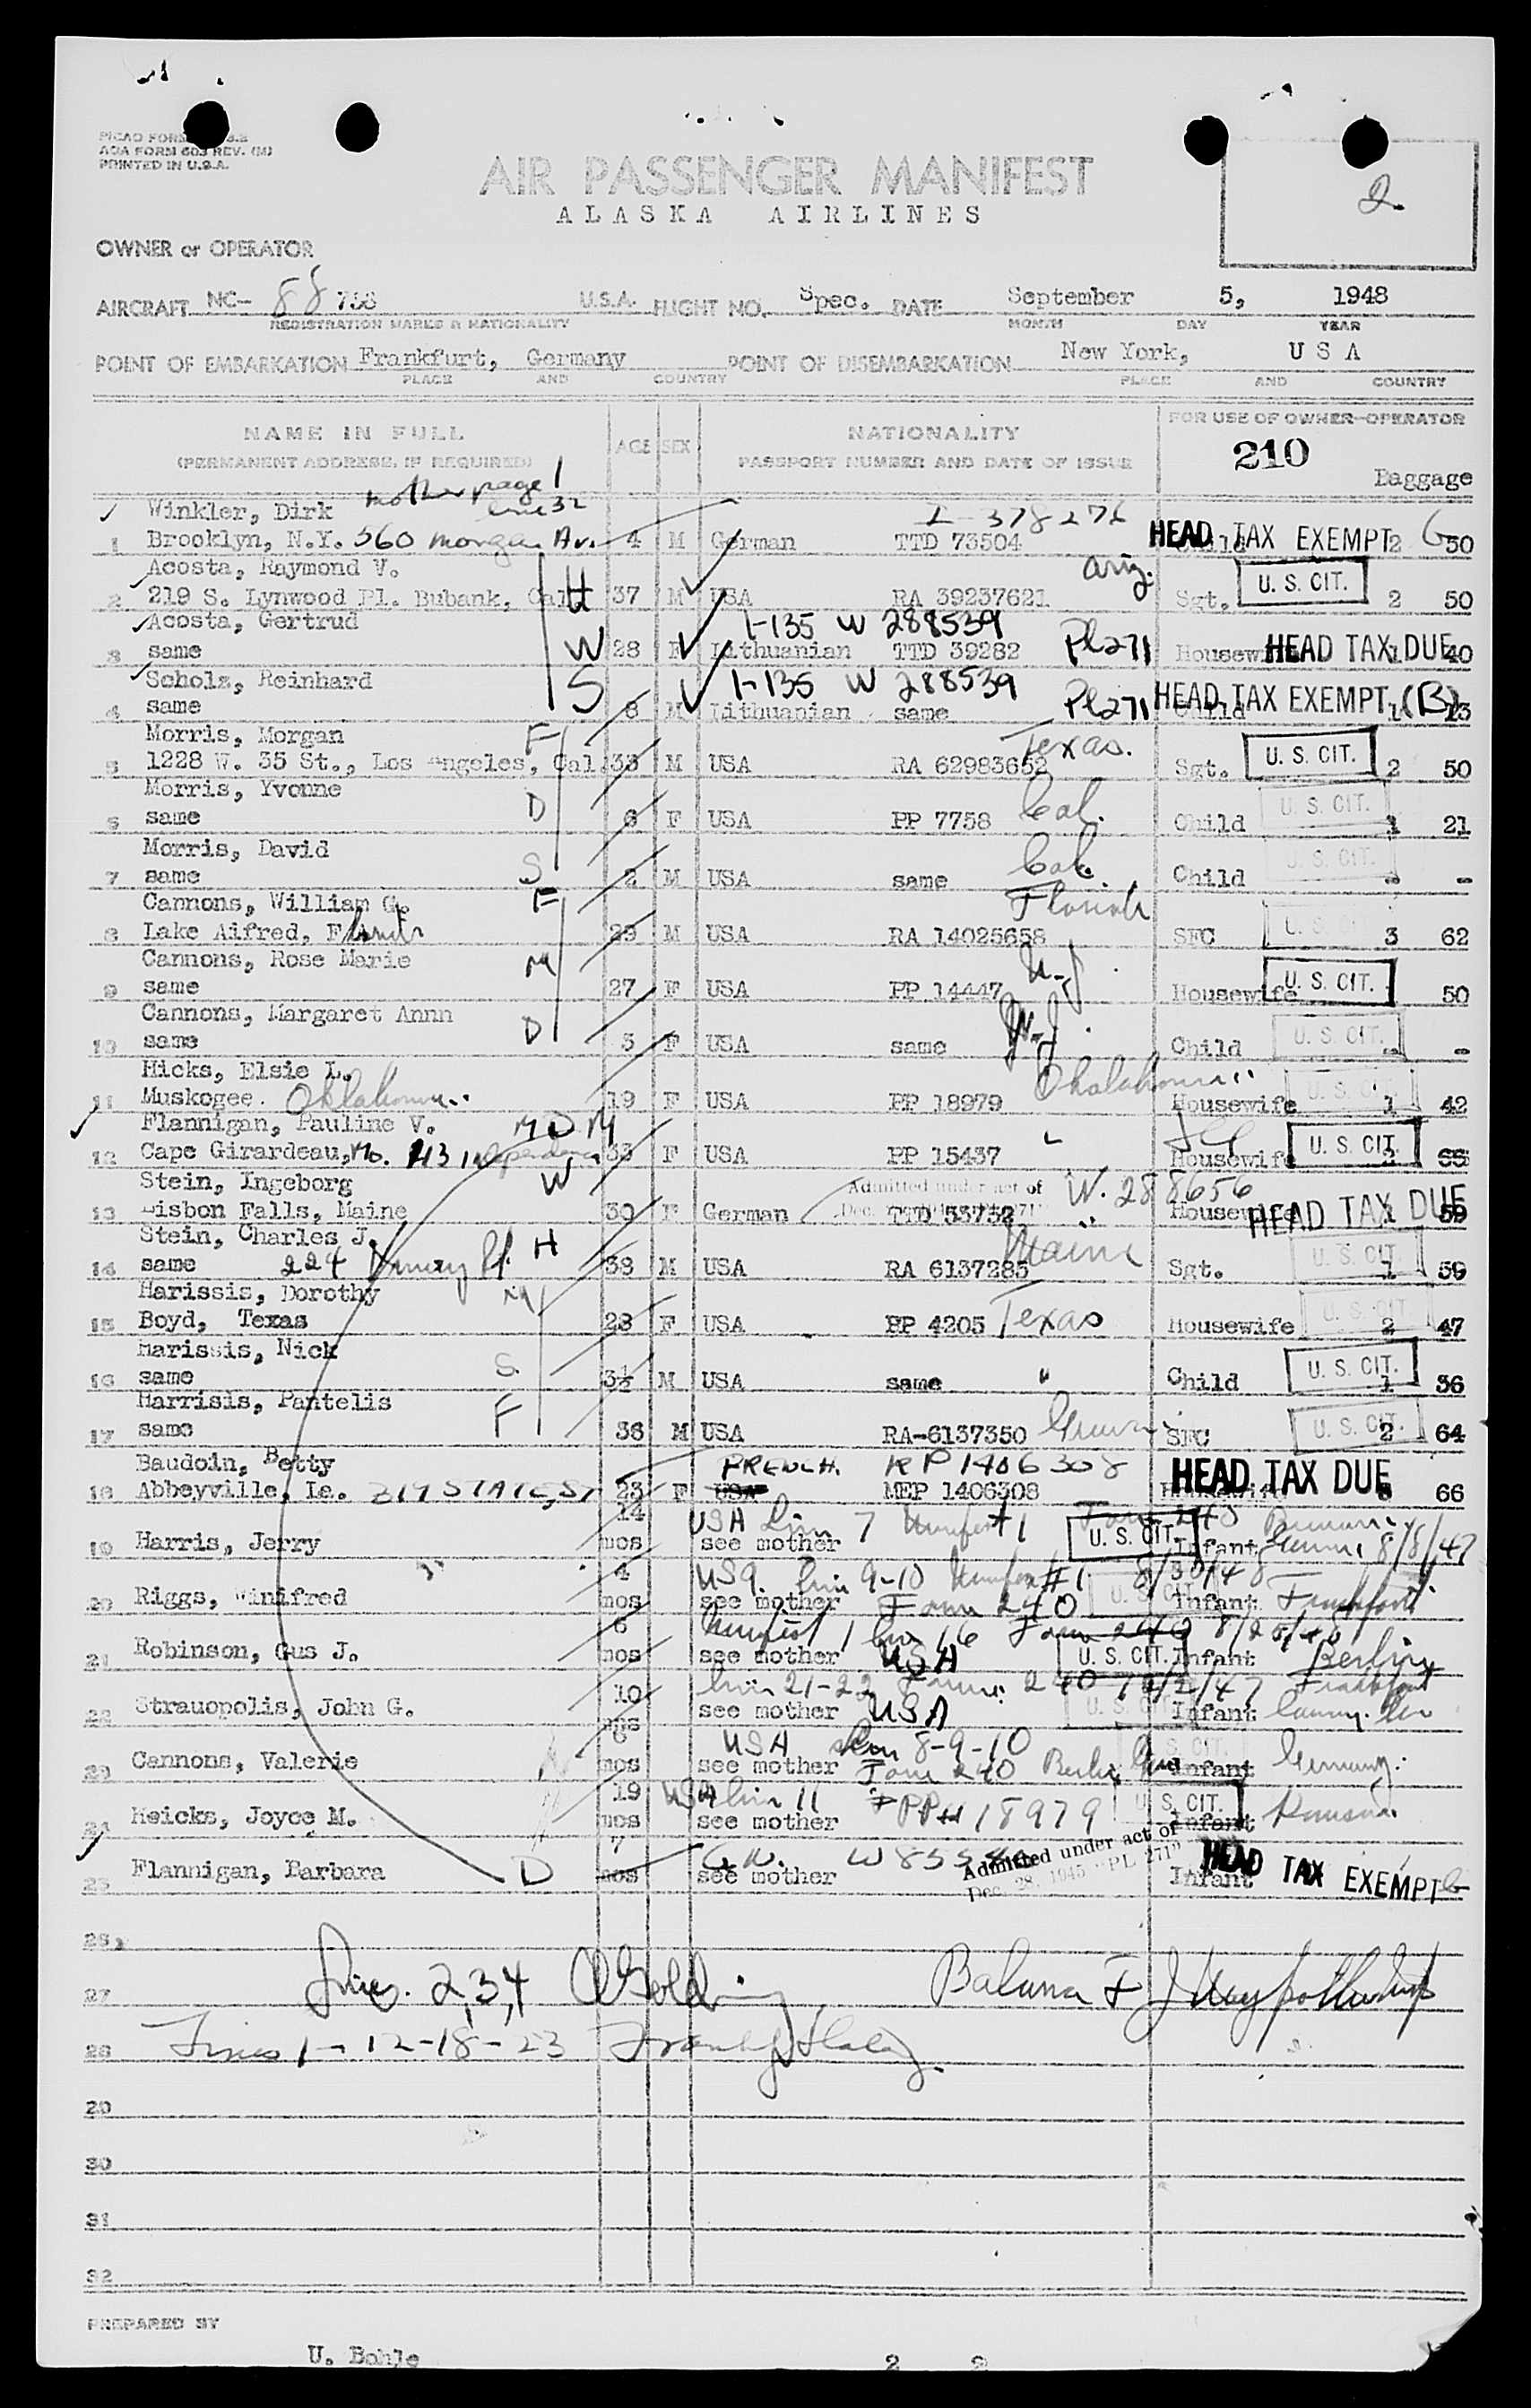 PICAO FORM
AOA FORM 603 REV. (M)
PRINTED IN U.S.A.
2
AIR PASSENGER MANIFEST
ALASKA AIRLINES
OWNER or OPERATOR
AIRCRAFT NC- 88 U.S.A. FLIGHT NO. Spec. DATE September 5, 1948
REGISTRATION MARKS & NATIONALITY MONTH DAY YEAR
POINT OF EMBARKATION Frankfurt, Germany POINT OF DISEMBARKATION New York, U S A
PLACE AND COUNTRY PLACE AND COUNTRY
NAME IN FULL AGE SEX NATIONALITY FOR USE OF OWNER-OPERATOR
(PERMANENT ADDRESS, IF REQUIRED) PASSPORT NUMBER AND DATE OF ISSUE 210 Baggage
mother page 1
Winkler, Dirk line 32 I-378276
1 Brooklyn, N.Y. 560 Morgan Av. 4 M German TTD 73504 Child HEAD TAX EXEMPT 2 50
Acosta, Raymond V. Ariz.
2 219 S. Lynwood Pl. Bubank, Cal H 37 M USA RA 39237621 Sgt. U. S. CIT. 2 50
Acosta, Gertrud 1-135 W 288539
3 same W 28 F Lithuanian TTD 39282 PL271 Housewife HEAD TAX DUE 1 40
Scholz, Reinhard 1-135 W 288539
4 same S 8 M Lithuanian same PL271 Child HEAD TAX EXEMPT (B) 1 13
Morris, Morgan F Texas.
5 1228 W. 35 St., Los Angeles, Cal. 33 M USA RA 62983652 Sgt. U. S. CIT. 2 50
Morris, Yvonne
6 same D 6 F USA PP 7758 Cal. Child U. S. CIT. 1 21
Morris, David
7 same S 2 M USA same Cal. Child U. S. CIT. - -
Cannons, William G. F Florida
8 Lake Alfred, Florida 29 M USA RA 14025658 SFC U. S. CIT. 3 62
Cannons, Rose Marie M N.J.
9 same 27 F USA PP 14447 Housewife U. S. CIT. 50
Cannons, Margaret Annn D N.J.
10 same 3 F USA same Child U. S. CIT. - -
Hicks, Elsie L. Oklahoma
11 Muskogee. Oklahoma 19 F USA PP 18979 Housewife U. S. CIT. 1 42
Flannigan, Pauline V. M
12 Cape Girardeau, Mo. 413 Independence 33 F USA PP 15437 Housewife U. S. CIT. 65
Stein, Ingeborg W Admitted under act of W. 288656
13 Lisbon Falls, Maine 30 F German TTD 53732 Housewife HEAD TAX DUE 1 59
Stein, Charles J. H Maine
14 same 224 38 M USA RA 6137283 Sgt. U. S. CIT. 1 59
Harissis, Dorothy M
15 Boyd, Texas 28 F USA PP 4205 Texas Housewife U. S. CIT. 2 47
Harissis, Nick S
16 same 3½ M USA same " Child U. S. CIT. 1 36
Harrisis, Pantelis F
17 same 36 M USA RA-6137350 SFC U. S. CIT. 2 64
Baudoin, Betty FRENCH. RP 1406308
18 Abbeyville, La. 219 STATE ST 23 F USA MEP 1406308 Housewife HEAD TAX DUE 66
14 USA Line 7 Manifest 1 Form 240 Bremen
19 Harris, Jerry mos see mother U. S. CIT. Infant 8/8/47
4 USA. Line 9-10 Manifest #1 8/30/48
20 Riggs, Winifred mos see mother Form 240 U. S. CIT. Infant Frankfort
6 Manifest 1 line 16 Form 240
21 Robinson, Gus J. mos see mother USA U. S. CIT. Infant Berlin
10 Line 21-22 Form 240 Frankfort
22 Strauopolis, John G. mos see mother USA U. S. CIT. Infant
6 USA line 8-9-10
23 Cannons, Valerie mos see mother Form 240 Berlin Infant Germany.
19 USA line 11
24 Heicks, Joyce M. mos see mother PP# 18979 U. S. CIT. Infant
7 Admitted under act of
25 Flannigan, Barbara D mos see mother Dec. 28, 1945 "PL 271" Infant HEAD TAX EXEMPT
26
27 Lines. 2,3,4
28 Lines 1-12-18-23
29
30
31
32
PREPARED BY
U. Bohle 2 2